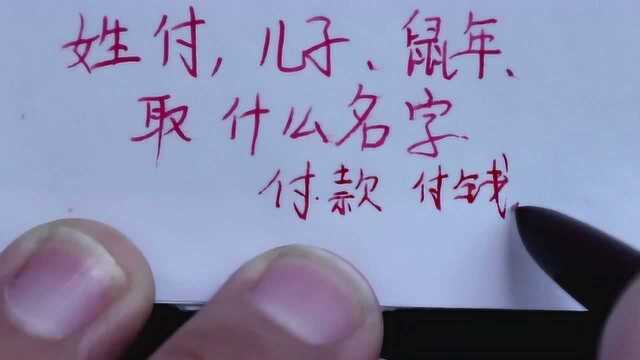 姓付,儿子、鼠年、
取什么名字
付款 付钱